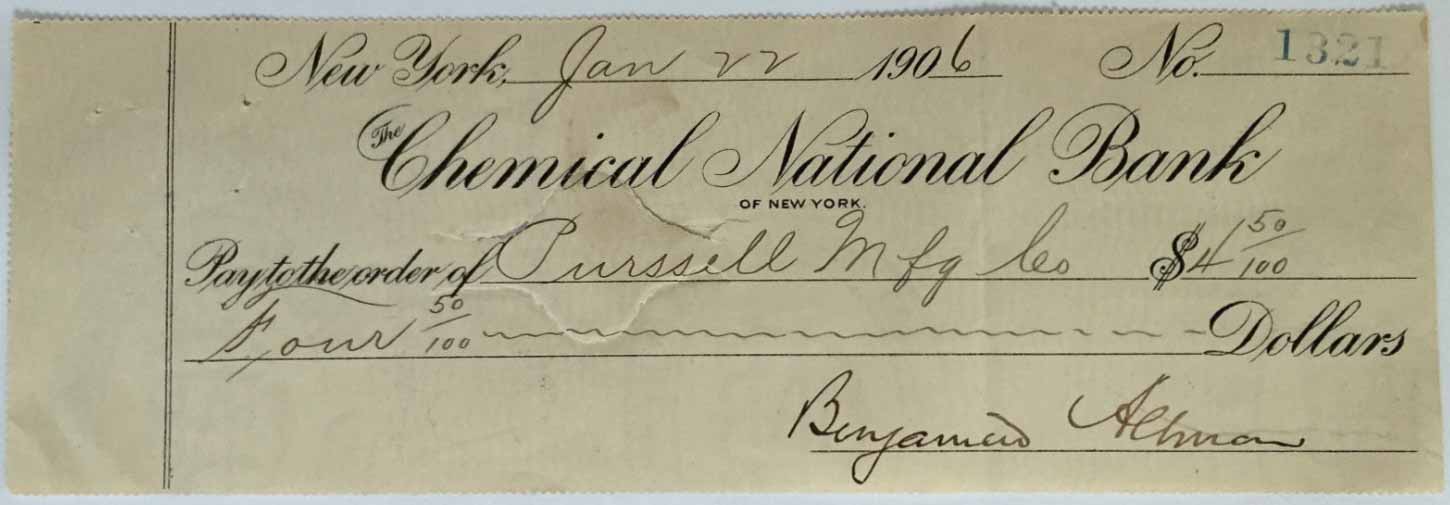 New York, Jan 22 1906 No. 1321
The Chemical National Bank
OF NEW YORK.
Pay to the order of Purssell Mfg Co $4 50/100
Four 50/100 Dollars
Benjamin Altman